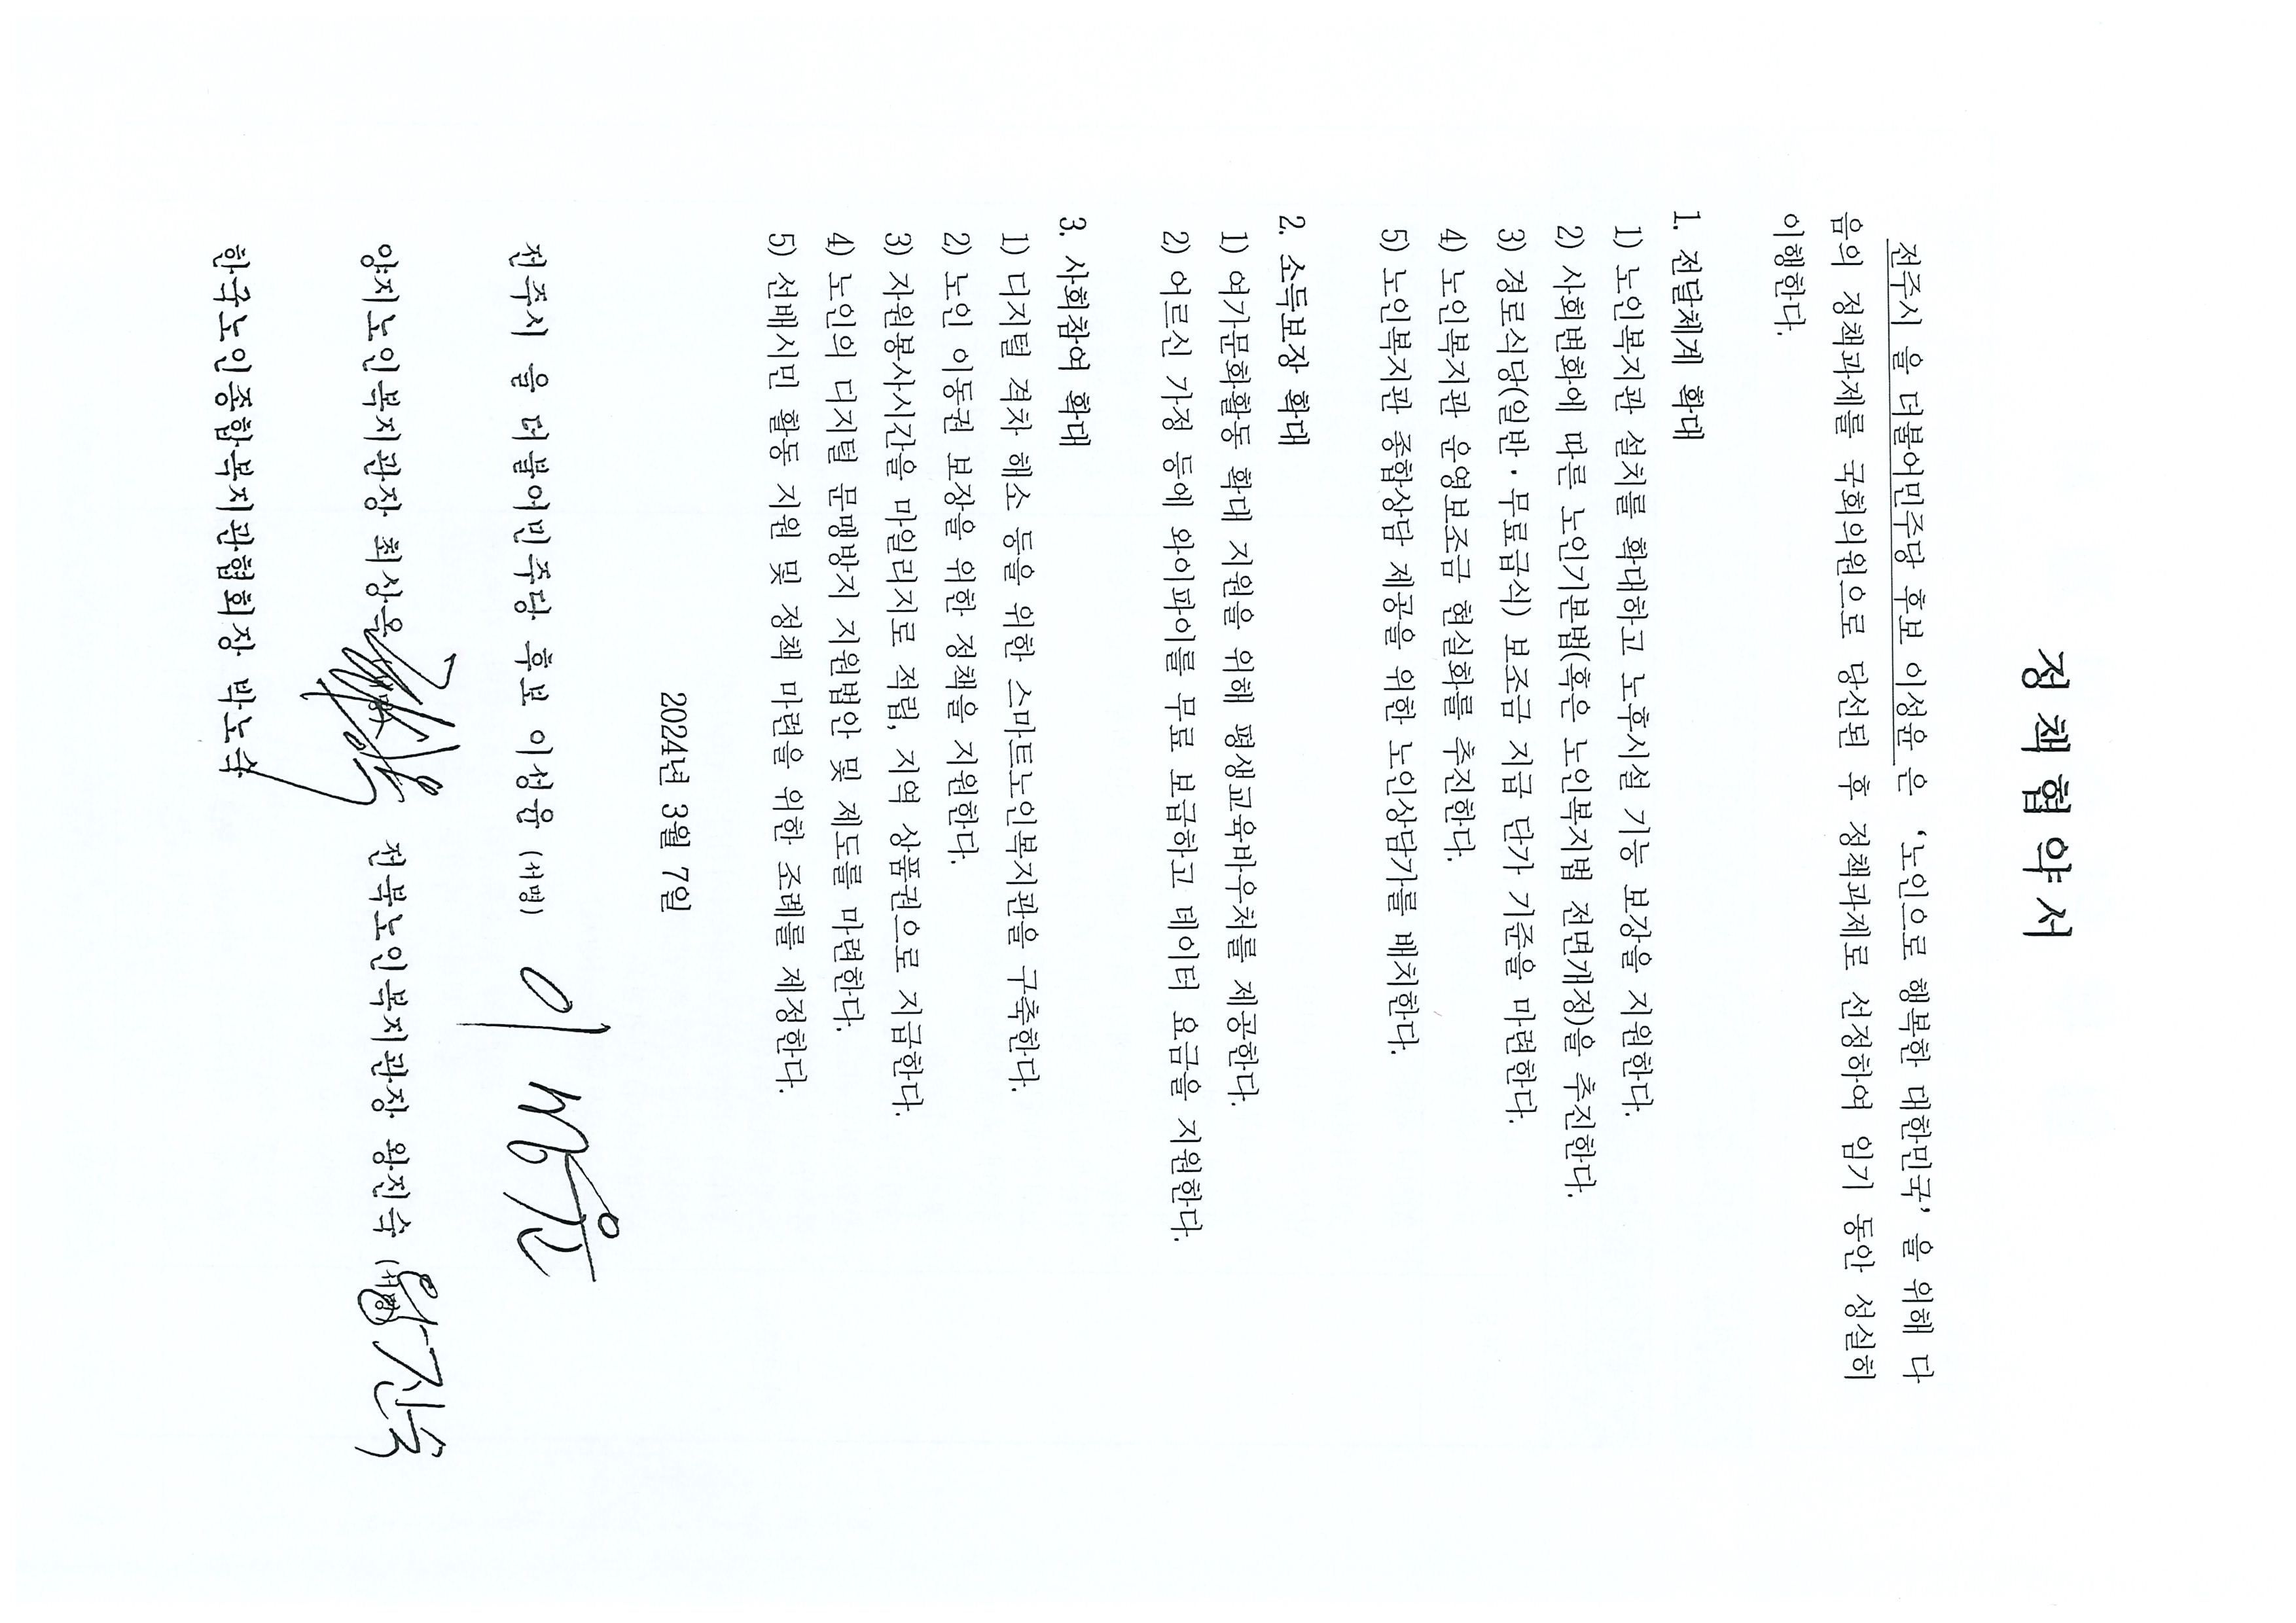 정 책 협 약 서
전주시 을 더불어민주당 후보 이성윤 은 ‘노인으로 행복한 대한민국’ 을 위해 다
음의 정책과제를 국회의원으로 당선된 후 정책과제로 선정하여 임기 동안 성실히
이행한다.
1. 전달체계 확대
1) 노인복지관 설치를 확대하고 노후시설 기능 보강을 지원한다.
2) 사회변화에 따른 노인기본법(혹은 노인복지법 전면개정)을 추진한다.
3) 경로식당(일반·무료급식) 보조금 지급 단가 기준을 마련한다.
4) 노인복지관 운영보조금 현실화를 추진한다.
5) 노인복지관 종합상담 제공을 위한 노인상담가를 배치한다.
2. 소득보장 확대
1) 여가문화활동 확대 지원을 위해 평생교육바우처를 제공한다.
2) 어르신 가정 등에 와이파이를 무료 보급하고 데이터 요금을 지원한다.
3. 사회참여 확대
1) 디지털 격차 해소 등을 위한 스마트노인복지관을 구축한다.
2) 노인 이동권 보장을 위한 정책을 지원한다.
3) 자원봉사시간을 마일리지로 적립, 지역 상품권으로 지급한다.
4) 노인의 디지털 문맹방지 지원법안 및 제도를 마련한다.
5) 선배시민 활동 지원 및 정책 마련을 위한 조례를 제정한다.
2024년 3월 7일
전주시 을 더불어민주당 후보 이성윤 (서명) 이성윤
양지노인복지관장 최상욱 (서명) 전북노인복지관장 왕진숙 (서명) 왕진숙
한국노인종합복지관협회장 박노숙